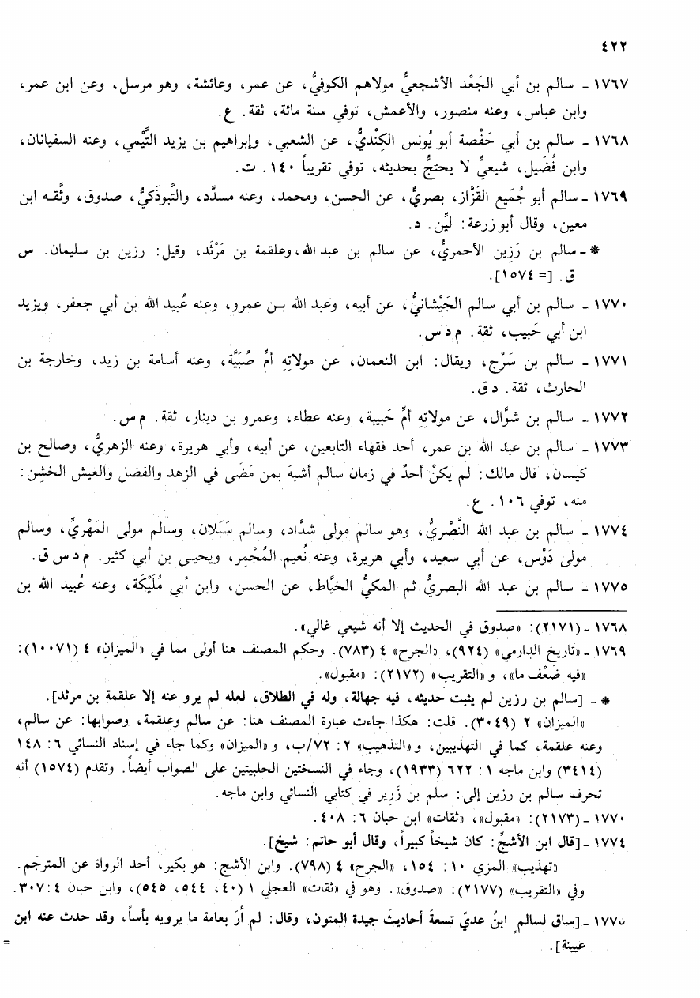 ٤٢٢
١٧٦٧ - سالم بن أبي الجَعْد الأشجعيُّ مولاهم الكوفيُّ، عن عمر، وعائشة، وهو مرسل، وعن ابن عمر،
وابن عباس، وعنه منصور، والأعمش، توفي سنة مائة، ثقة. ع.
١٧٦٨ - سالم بن أبي حَفْصة أبو يُونس الكِنْديُّ، عن الشعبي، وإبراهيم بن يزيد التَّيْمي، وعنه السفيانان،
وابن فُضَيل، شيعيٌّ لا يحتجُّ بحديثه، توفي تقريباً ١٤٠. ت.
١٧٦٩ - سالم أبو جُمَيع القزَّاز، بصريٌّ، عن الحسن، ومحمد، وعنه مسدَّد، والتَّبوذَكيُّ، صدوق، وثَّقه ابن
معين، وقال أبو زرعة: ليِّن. د.
* - سالم بن رَزِين الأحمريُّ، عن سالم بن عبد الله، وعلقمة بن مَرْثَد، وقيل: رزين بن سليمان. س
ق. [= ١٥٧٤].
١٧٧٠ - سالم بن أبي سالم الجَيْشانيُّ، عن أبيه، وعبد الله بن عمرو، وعنه عُبيد الله بن أبي جعفر، ويزيد
ابن أبي حَبيب، ثقة. م د س.
١٧٧١ - سالم بن سَرْج، ويقال: ابن النعمان، عن مولاتِهِ أمِّ صُبَيَّة، وعنه أسامة بن زيد، وخارجة بن
الحارث، ثقة. د ق.
١٧٧٢ - سالم بن شوَّال، عن مولاتِهِ أمِّ حَبيبة، وعنه عطاء، وعمرو بن دينار، ثقة. م س.
١٧٧٣ - سالم بن عبد الله بن عمر، أحد فقهاء التابعين، عن أبيه، وأبي هريرة، وعنه الزهريُّ، وصالح بن
كيسان، قال مالك: لم يكنْ أحدٌ في زمان سالم أشبهَ بمن مَضَى في الزهد والفضل والعيش الخشن:
منه، توفي ١٠٦. ع.
١٧٧٤ - سالم بن عبد الله النَّصْريُّ، وهو سالم مولى شدَّاد، وسالم سَبَلان، وسالم مولى المَهْريِّ، وسالم
مولى دَوْس، عن أبي سعيد، وأبي هريرة، وعنه نُعيم المُجْمر، ويحيى بن أبي كثير. م د س ق.
١٧٧٥ - سالم بن عبد الله البصريُّ ثم المكيُّ الخيَّاط، عن الحسن، وابن أبي مُلَيْكة، وعنه عُبيد الله بن
١٧٦٨ - (٢١٧١): «صدوق في الحديث إلا أنه شيعي غالي».
١٧٦٩ - «تاريخ الدارمي» (٩٢٤)، «الجرح» ٤ (٧٨٣). وحكم المصنف هنا أولى مما في «الميزان» ٤ (١٠٠٧١):
«فيه ضَعْف ما»، و«التقريب» (٢١٧٢): «مقبول».
* - [سالم بن رزين لم يثبت حديثه، فيه جهالة، وله في الطلاق، لعله لم يرو عنه إلا علقمة بن مرثد].
«الميزان» ٢ (٣٠٤٩). قلت: هكذا جاءت عبارة المصنف هنا: عن سالم وعلقمة، وصوابها: عن سالم،
وعنه علقمة، كما في التهذيبين، و«التذهيب» ٢: ٧٢/ب، و«الميزان» وكما جاء في إسناد النسائي ٦: ١٤٨
(٣٤١٤) وابن ماجه ١: ٦٢٢ (١٩٣٣)، وجاء في النسختين الحلبيتين على الصواب أيضاً. وتقدم (١٥٧٤) أنه
تحرف سالم بن رزين إلى: سلم بن زَرِير في كتابي النسائي وابن ماجه.
١٧٧٠ - (٢١٧٣): «مقبول»، «ثقات» ابن حبان ٦: ٤٠٨.
١٧٧٤ - [قال ابن الأشجِّ: كان شيخاً كبيراً، وقال أبو حاتم: شيخ].
«تهذيب» المزي ١٠: ١٥٤، «الجرح» ٤ (٧٩٨). وابن الأشج: هو بكير، أحد الرواة عن المترجَم.
وفي «التقريب» (٢١٧٧): «صدوق». وهو في «ثقات» العجلي ١ (٤٠، ٥٤٤، ٥٤٥)، وابن حبان ٤: ٣٠٧.
١٧٧٥ - [ساق لسالمٍ ابنُ عديّ تسعةَ أحاديثَ جيدة المتون، وقال: لم أرَ بعامة ما يرويه بأساً، وقد حدث عنه ابن
عيينة]. =